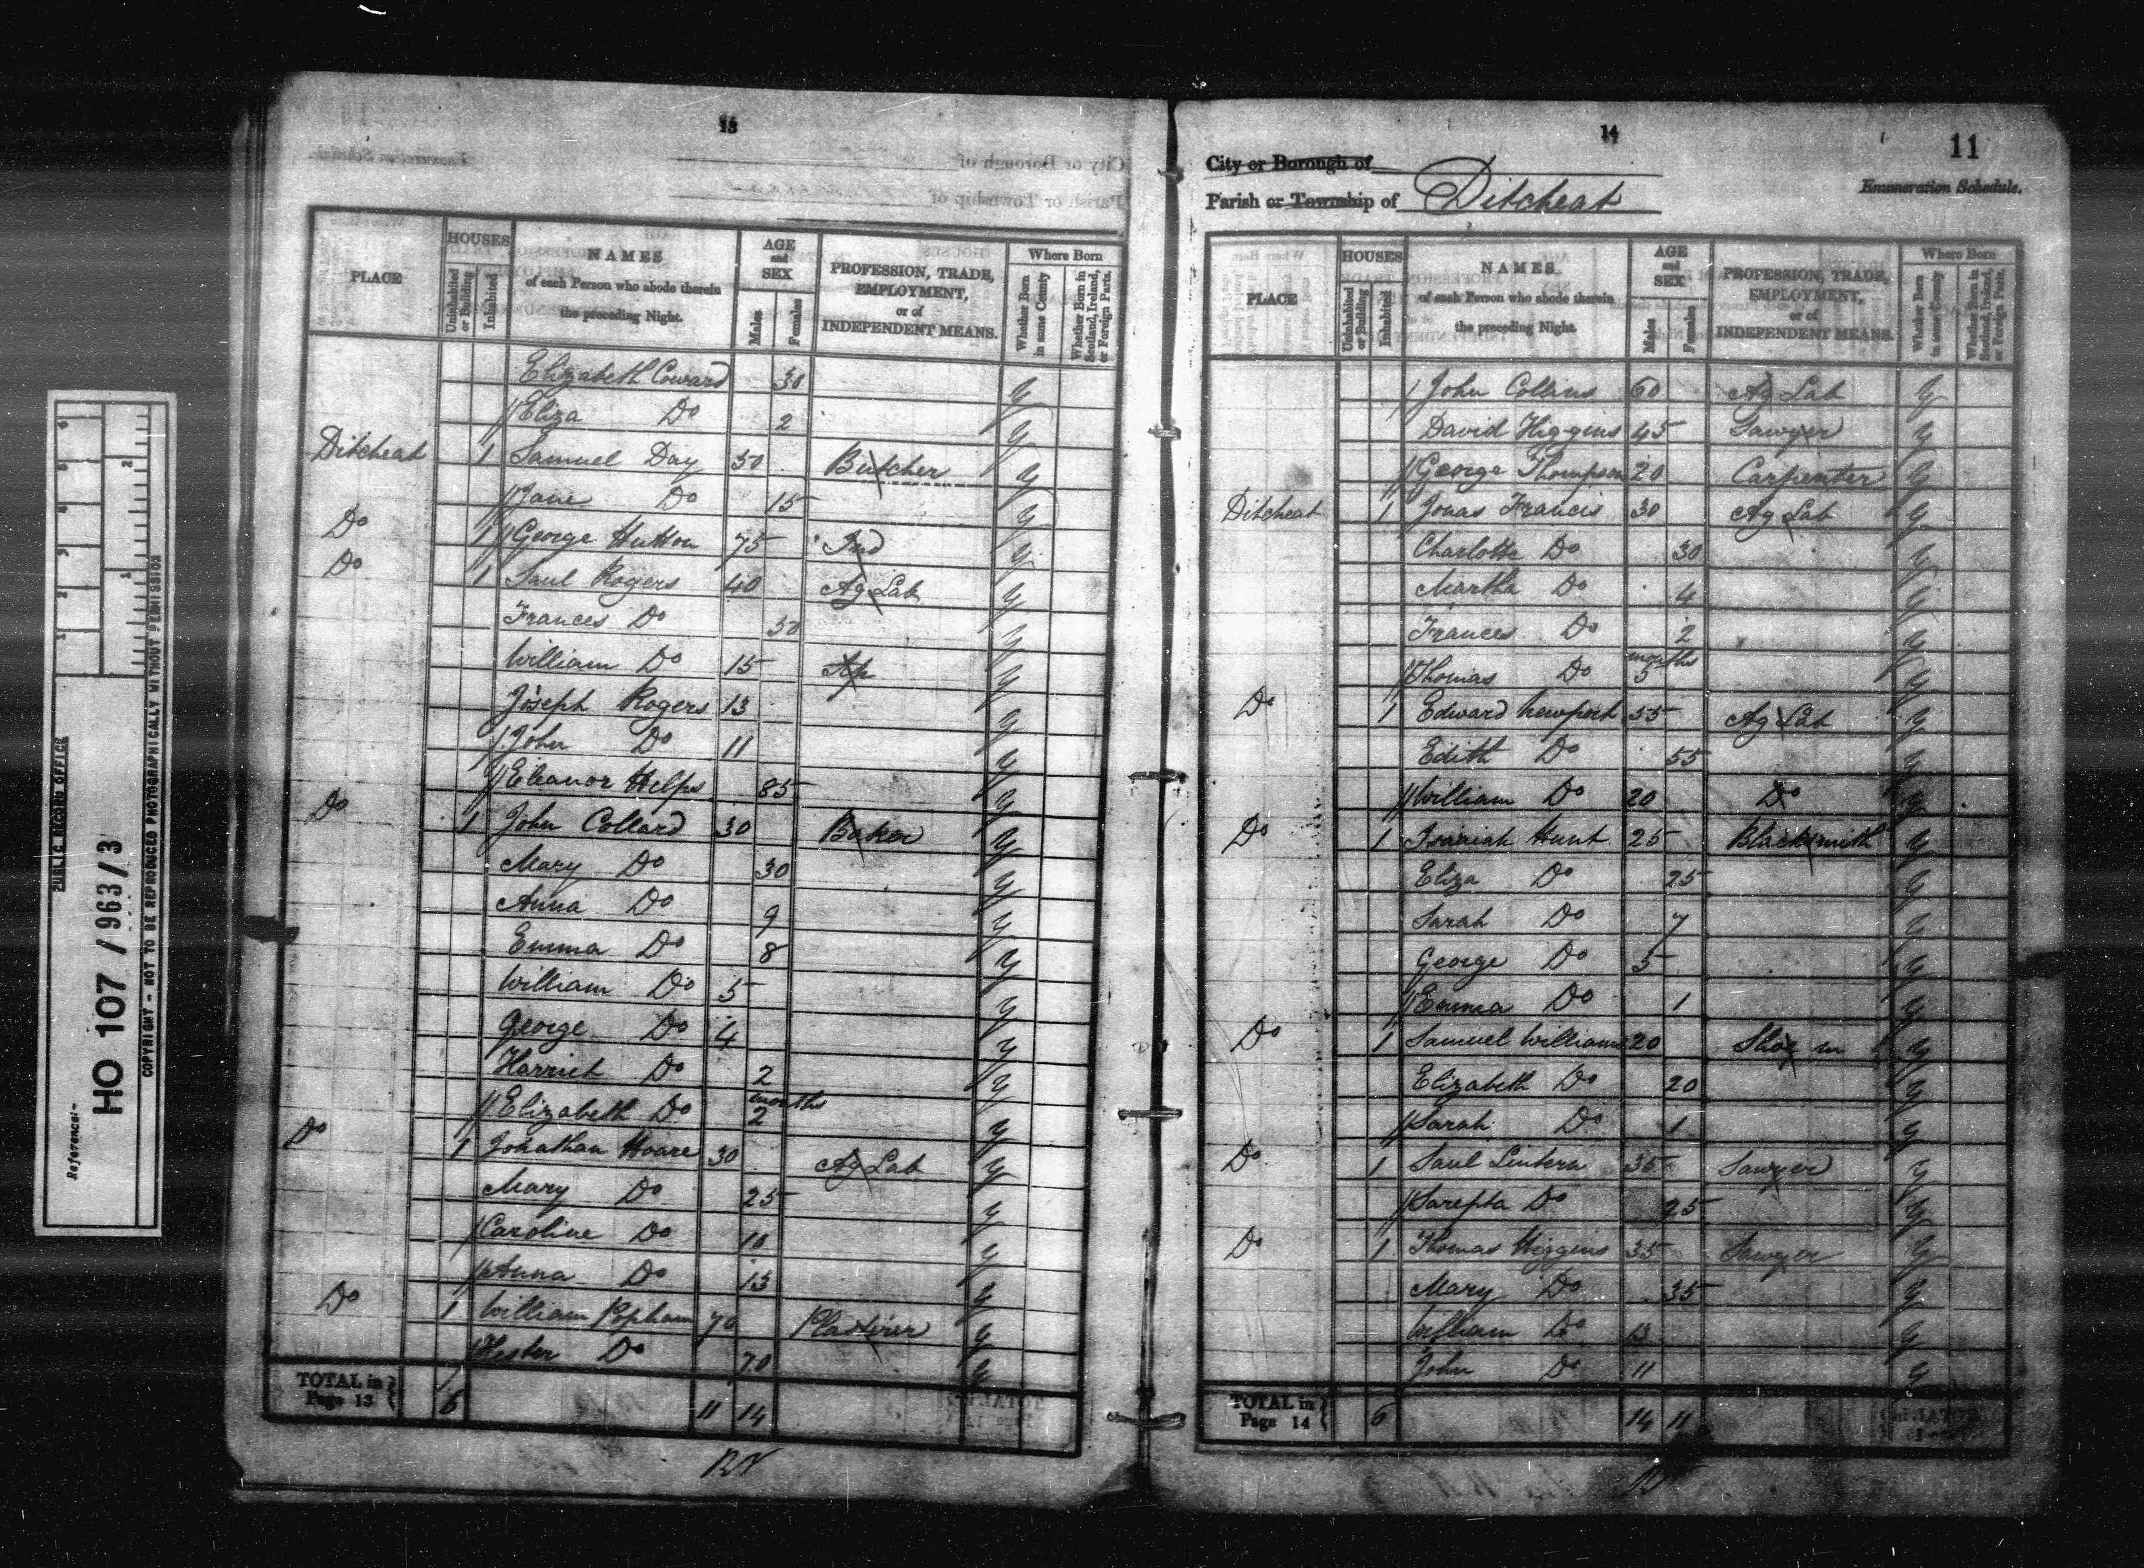 PUBLIC RECORD OFFICE
Reference:-
HO 107 / 963 / 3
COPYRIGHT - NOT TO BE REPRODUCED PHOTOGRAPHICALLY WITHOUT PERMISSION
13
PLACE
HOUSES
Uninhabited or Building
Inhabited
NAMES
of each Person who abode therein
the preceding Night.
AGE and SEX
Males
Females
PROFESSION, TRADE, EMPLOYMENT, or of INDEPENDENT MEANS.
Where Born
Whether Born in same County
Whether Born in Scotland, Ireland, or Foreign Parts.
Elizabeth Coward 30 y
Eliza Do 2 y
Ditcheat 1 Samuel Day 30 Butcher y
Jane Do 15 y
Do 1 George Hutton 75 Ind y
Do 1 Saul Rogers 40 Ag Lab y
Frances Do 30 y
William Do 15 Ap y
Joseph Rogers 13 y
John Do 11 y
Eleanor Helps 85 y
Do 1 John Collard 30 Baker y
Mary Do 30 y
Anna Do 9 y
Emma Do 8 y
William Do 5 y
George Do 4 y
Harriet Do 2 y
Elizabeth Do months 2 y
Do 1 Jonathan Hoare 30 Ag Lab y
Mary Do 25 y
Caroline Do 10 y
Anna Do 13 y
Do 1 William Popham 70 Plasterer y
Hester Do 70 y
TOTAL in Page 13 6 11 14
14
11
City or Borough of
Parish or Township of Ditcheat
Enumeration Schedule.
PLACE
HOUSES
Uninhabited or Building
Inhabited
NAMES
of each Person who abode therein
the preceding Night.
AGE and SEX
Males
Females
PROFESSION, TRADE, EMPLOYMENT, or of INDEPENDENT MEANS.
Where Born
Whether Born in same County
Whether Born in Scotland, Ireland, or Foreign Parts.
John Collins 60 Ag Lab y
David Higgins 45 Sawyer y
George Thompson 20 Carpenter y
Ditcheat 1 Jonas Francis 30 Ag Lab y
Charlotte Do 30 y
Martha Do 4 y
Frances Do 2 y
Thomas Do months 5 y
Do 1 Edward Newport 55 Ag Lab y
Edith Do 55 y
William Do 20 Do y
Do 1 Isaiah Hunt 25 Blacksmith y
Eliza Do 25 y
Sarah Do 7 y
George Do 5 y
Emma Do 1 y
Do 1 Samuel Williams 20 Shoe m y
Elizabeth Do 20 y
Sarah Do 1 y
Do 1 Saul Lintern 35 Sawyer y
Sarepta Do 25 y
Do 1 Thomas Higgins 35 Sawyer y
Mary Do 35 y
William Do 13 y
John Do 11 y
TOTAL in Page 14 6 14 11